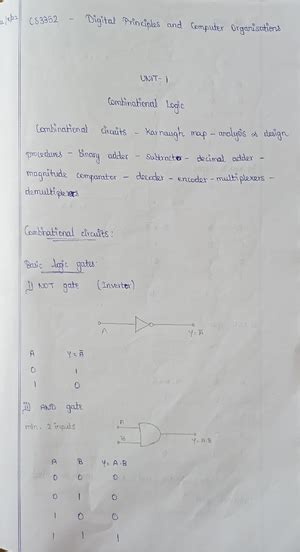 CS3352 - Digital Principles and Computer Organisations
UNIT-1
Combinational Logic
Combinational circuits - Karnaugh map - analysis & design
procedures - binary adder - subtractor - decimal adder -
magnitude comparator - decoder - encoder - multiplexers -
demultiplexers
Combinational circuits:
Basic logic gates:
i) NOT gate (Invertor)
A Y=A̅
A Y=A̅
0 1
1 0
ii) AND gate
min. 2 inputs
A
B Y=A·B
A B Y=A·B
0 0 0
0 1 0
1 0 0
1 1 1